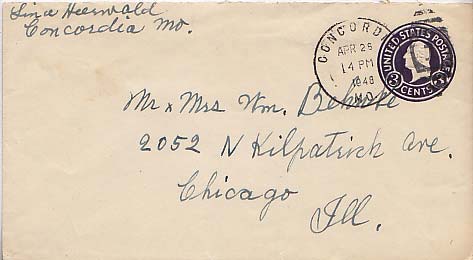 Lina Heerwald
Concordia Mo.
CONCORDI
APR 26
14 PM
1948
MO.
UNITED STATES POSTAGE
3 CENTS 3
Mr & Mrs Wm. Behnke
2052 N Kilpatrick Ave.
Chicago
Ill.